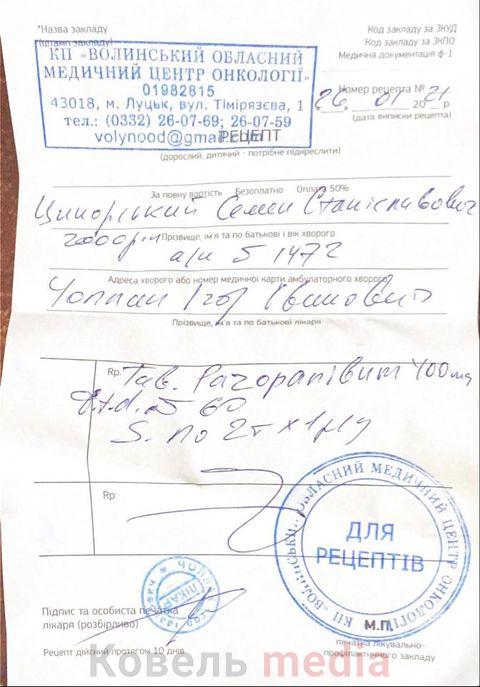 *Назва закладу
(штамп закладу)
Код закладу за ЗКУД
Код закладу за ЗКПО
Медична документація ф-1
КП «ВОЛИНСЬКИЙ ОБЛАСНИЙ
МЕДИЧНИЙ ЦЕНТР ОНКОЛОГІЇ»
01982815
43018, м. Луцьк, вул. Тімірязєва, 1
тел.: (0332) 26-07-69; 26-07-59
volynood@gmail.com
Номер рецепта №
26. 01 2021р.
(дата виписки рецепта)
РЕЦЕПТ
(дорослий, дитячий - потрібне підкреслити)
За повну вартість Безоплатно Оплата 50%
Семен Станіславович
Прізвище, ім'я та по батькові і вік хворого
а/к 5 1472
Адреса хворого або номер медичної карти амбулаторного хворого
Ігор Іванович
Прізвище, ім'я та по батькові лікаря
Rp. Tab. Pazopanibum 400 mg
D.t.d. № 60
S. по 2т х 1 р/д
Rp.
«ВОЛИНСЬКИЙ ОБЛАСНИЙ МЕДИЧНИЙ ЦЕНТР ОНКОЛОГІЇ» КП
ДЛЯ
РЕЦЕПТІВ
ЛІКАР
М.П.
Підпис та особиста печатка
лікаря (розбірливо)
печатка лікувально-
профілактичного закладу
Рецепт дійсний протягом 10 днів
Ковель media